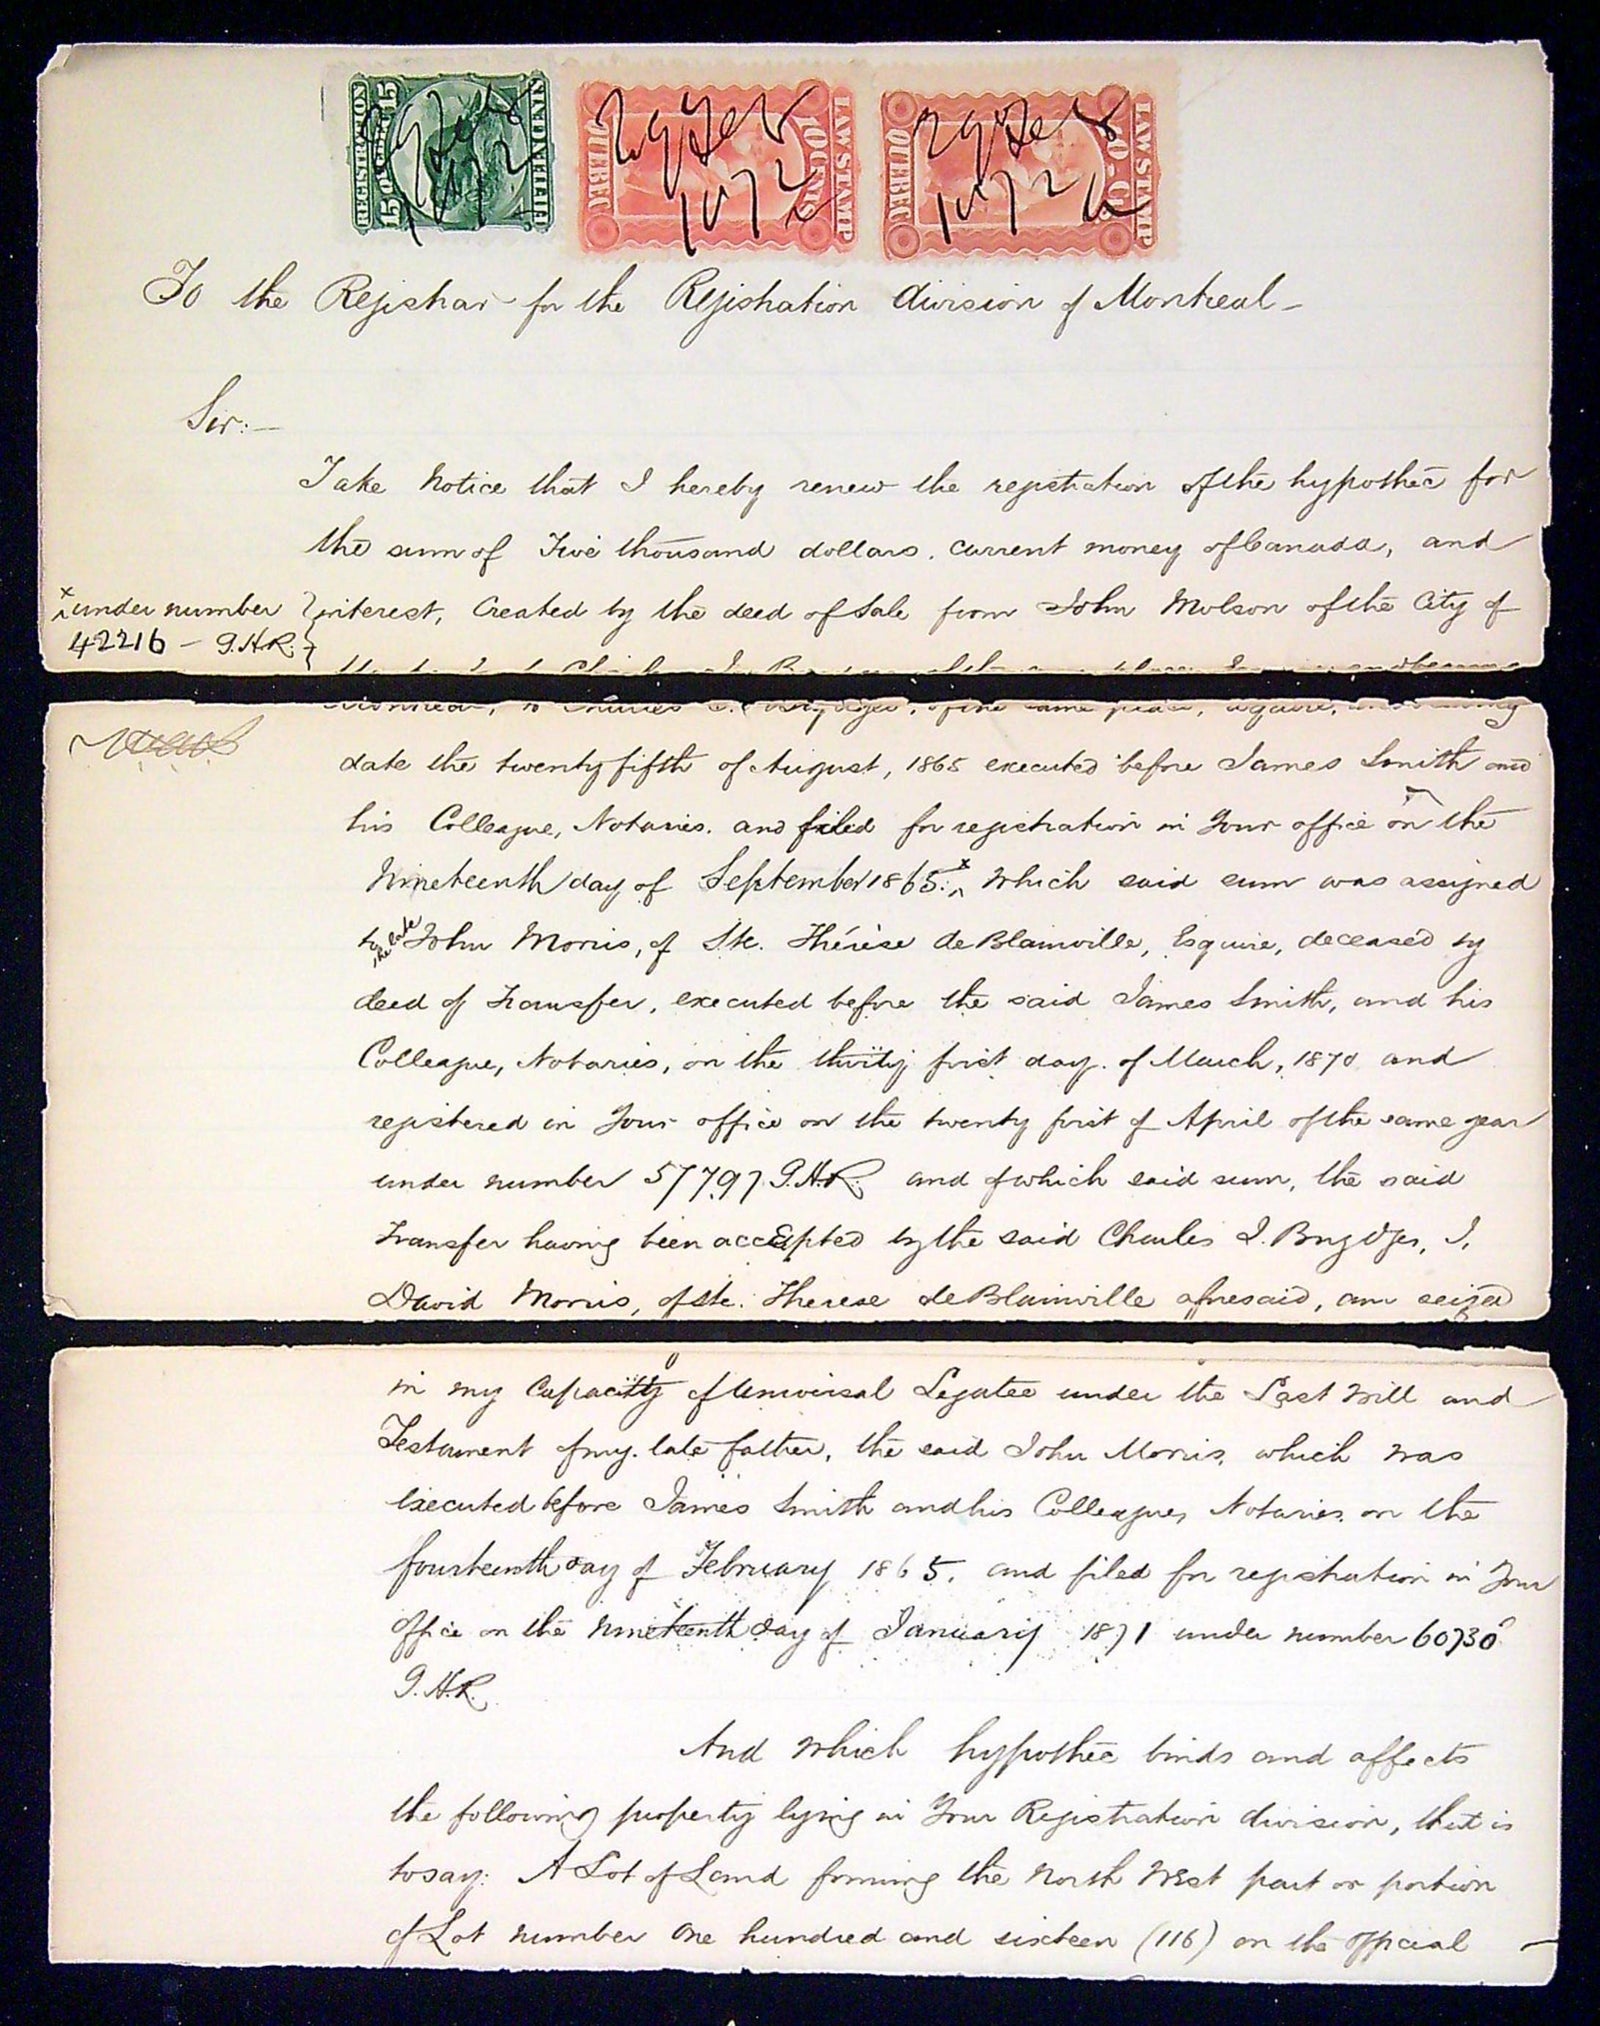 REGISTRATION
15 CENTS 15
FIFTEEN CENTS
QUEBEC
10 CENTS
LAW STAMP
QUEBEC
LAW STAMP
29 Feb 1872
29 Feb 1872
29 Feb 1872
To the Registrar for the Registration division of Montreal –
Sir:–
Take Notice that I hereby renew the registration of the hypothec for
the sum of Five thousand dollars. current money of Canada, and
interest, Created by the deed of Sale from John Molson of the City of
x under number
42216 – G.H.R.
Montreal, to Charles J. Brydges, of the same place, Esquire, and bearing
date the twenty fifth of August, 1865 executed before James Smith and
his Colleague, Notaries. and filed for registration in Your office on the
Nineteenth day of September 1865. x Which said sum was assigned
to the late John Morris, of Ste. Thérèse de Blainville, Esquire, deceased by
deed of Transfer, executed before the said James Smith, and his
Colleague, Notaries, on the thirty first day. of March, 1870 and
registered in Your office on the twenty first of April of the same year
under number 57797 G.H.R. and of which said sum, the said
Transfer having been accepted by the said Charles J. Brydges, I,
David Morris, of Ste. Therese de Blainville aforesaid, am seized
in my Capacity of Universal Legatee under the Last Will and
Testament of my late father, the said John Morris, which was
Executed before James Smith and his Colleague, Notaries. on the
fourteenth day of February 1865. and filed for registration in Your
Office on the Nineteenth day of January 1871 under number 60730
G.H.R.
And which hypothec binds and affects
the following property lying in Your Registration division, that is
to say: A Lot of Land forming the North West part or portion
of Lot number One hundred and sixteen (116) on the Official